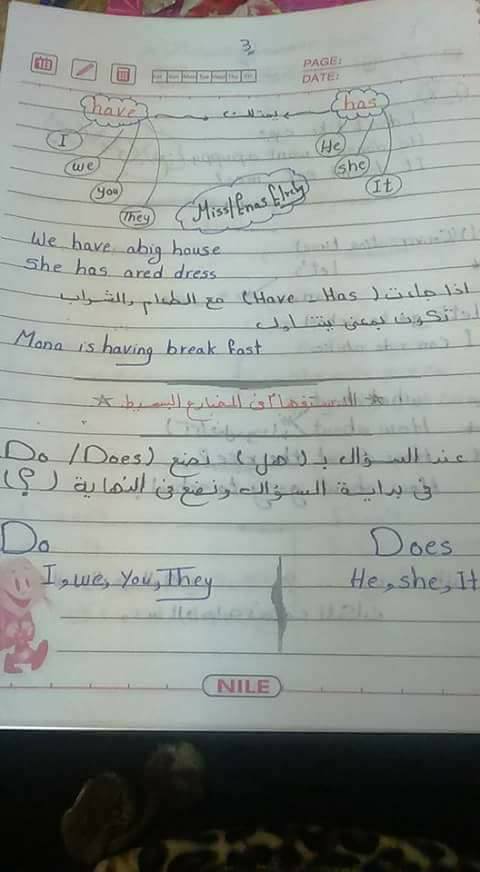 3
PAGE:
DATE:
have يمتلك has
I
we
you
They
He
she
It
Miss/Enas
We have abig house
She has ared dress
اذا جاءت (Have - Has) مع الطعام والشراب
تكون بمعنى يتناول
Mona is having break fast
الاستفهام فى المضارع البسيط
عند السؤال بـ (هل) نضع (Do / Does)
فى بداية السؤال ونضع فى النهاية (؟)
Do Does
I, we, You, They He, she, It
NILE